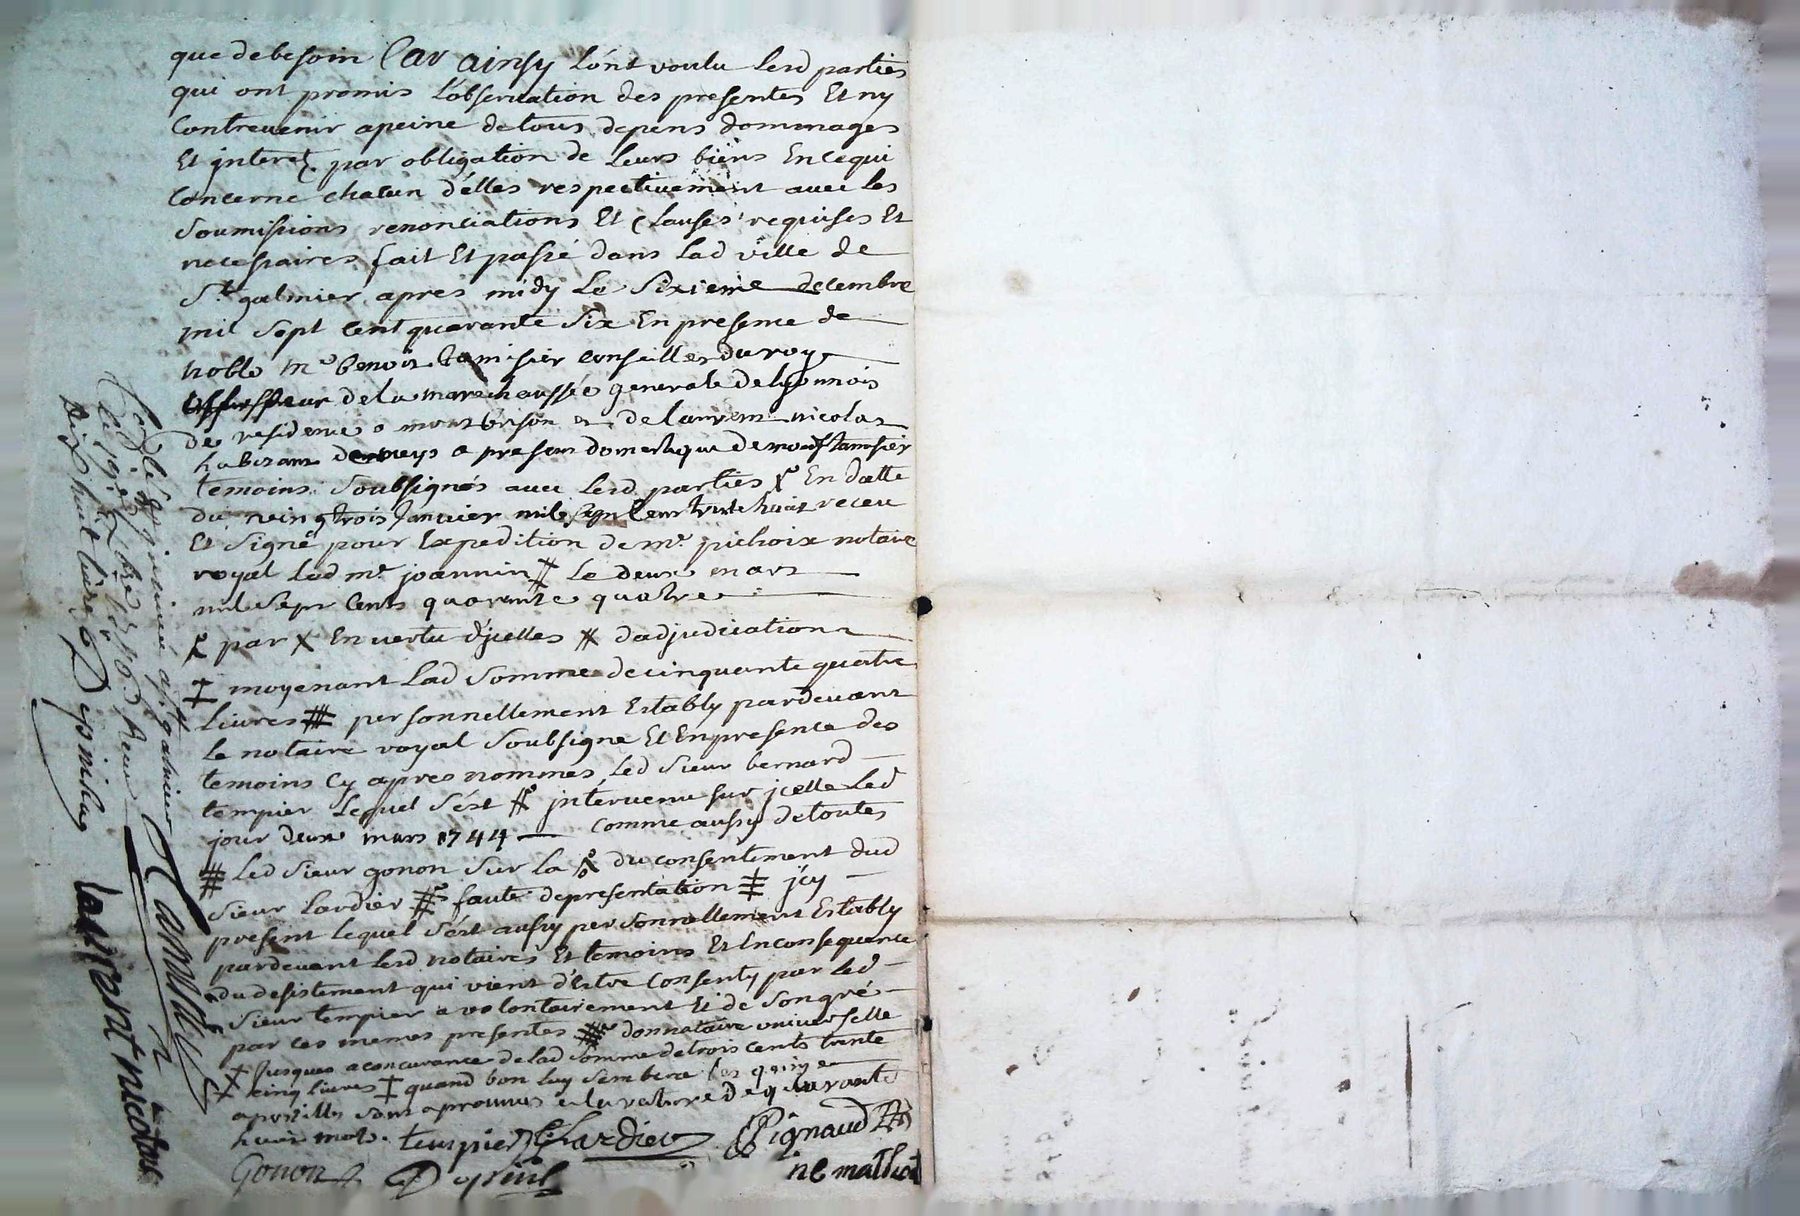 que debesoin Car ainsy lónt voulu lesd parties
qui ont promis lobservation des presentes Et ny
Contrevenir apeine detous depens dommages
Et jnteret par obligation de leurs biens Encequi
Concerne chacun d'elles respectivement avec les
Soumissions renonciations Et Clauses requises Et
necessaires fait Et passé dans lad ville de
St galmier apres midy le Sixieme decembre
mil Sept Cent quarante Six En presence de
noble me benoit tamisier Conseiller du roy
assesseur dela marechaussée generale de lyonnois
de residence a montbrison et de laurent nicolas
habitant a present domestique de
temoins Soubsignés avec lesd parties En datte
du vingt trois Janvier mil sept Cent trente huit receu
Et Signé pour Expedition de me pichoix notaire
royal led me joannin # le deux mars
mil Sept Cents quarante quatre
par X En vertu d'jcelles # dadjudication
‡ moyenant lad Somme de cinquante quatre
livres # personnellement Estably pardevant
le notaire royal Soubsigne Et En presence des
temoins Cy apres nommés led Sieur bernard
tempier lequel s'ést # jntervenu sur jcelle led
jour deux mars 1744 — Comme aussy de toutes
# led Sieur gonon Sur la du consentement dud
Sieur lardier # faute depresentation ‡ jcy
present lequel s'ést aussy personnellement Estably
pardevant lesd notaires Et temoins Et En consequence
du desistement qui vient d'Estre Consenty par led
Sieur tempier a volontairement Et de Son gré
par ces memes presentes # donnataire universelle
‡ jusques a concurance de lad Somme de trois cents trente
cinq livres ‡ quand bon luy semblera les quinze
apostilles sont aprouvées et la rature de quarante
huit mots. tempier Chardier Pignaud
Gonon Despint ne mathieu
Controllé a St galmier
Dix huit livres Despinlas
Tamisier
laurent nicolas